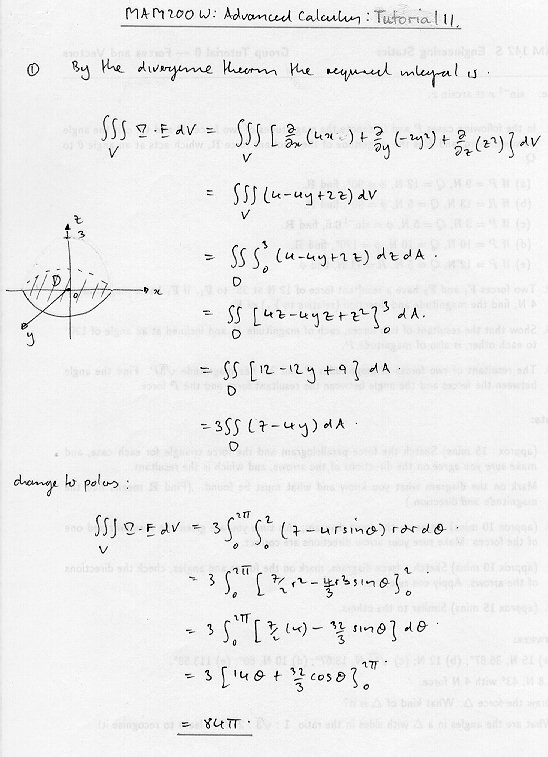 MAM200W: Advanced Calculus: Tutorial 11.
① By the divergence theorem the required integral is.
∭_V ∇·F dV = ∭_V [∂/∂x (4x) + ∂/∂y (-2y²) + ∂/∂z (z²)] dV
= ∭_V (4-4y+2z) dV
z
3
D
0
x
y
= ∬_D ∫_0^3 (4-4y+2z) dz dA.
= ∬_D [4z-4yz+z²]_0^3 dA.
= ∬_D [12-12y+9] dA.
= 3∬_D (7-4y) dA.
change to polars:
∭_V ∇·F dV = 3∫_0^{2π} ∫_0^2 (7-4r sinθ) r dr dθ.
= 3∫_0^{2π} [7/2 r² - 4/3 r³ sinθ]_0^2
= 3∫_0^{2π} [7/2 (4) - 32/3 sinθ] dθ.
= 3[14θ + 32/3 cosθ]_0^{2π}.
= 84π.